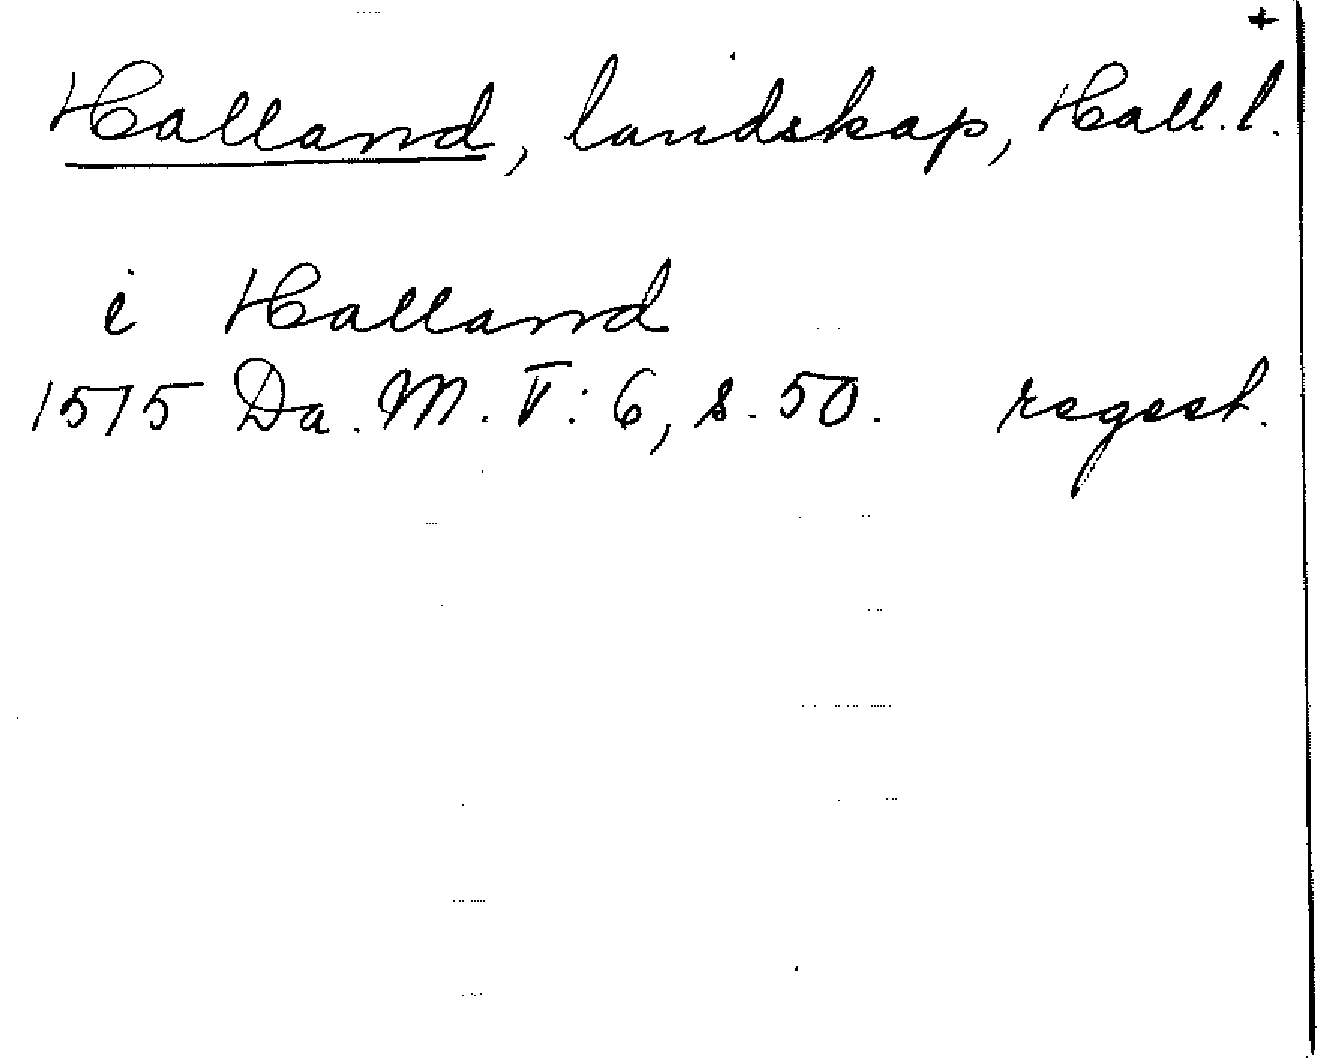 +
Halland, landskap, Hall. l.
i Halland
1575 Da. M. V: 6, s. 50. regest.